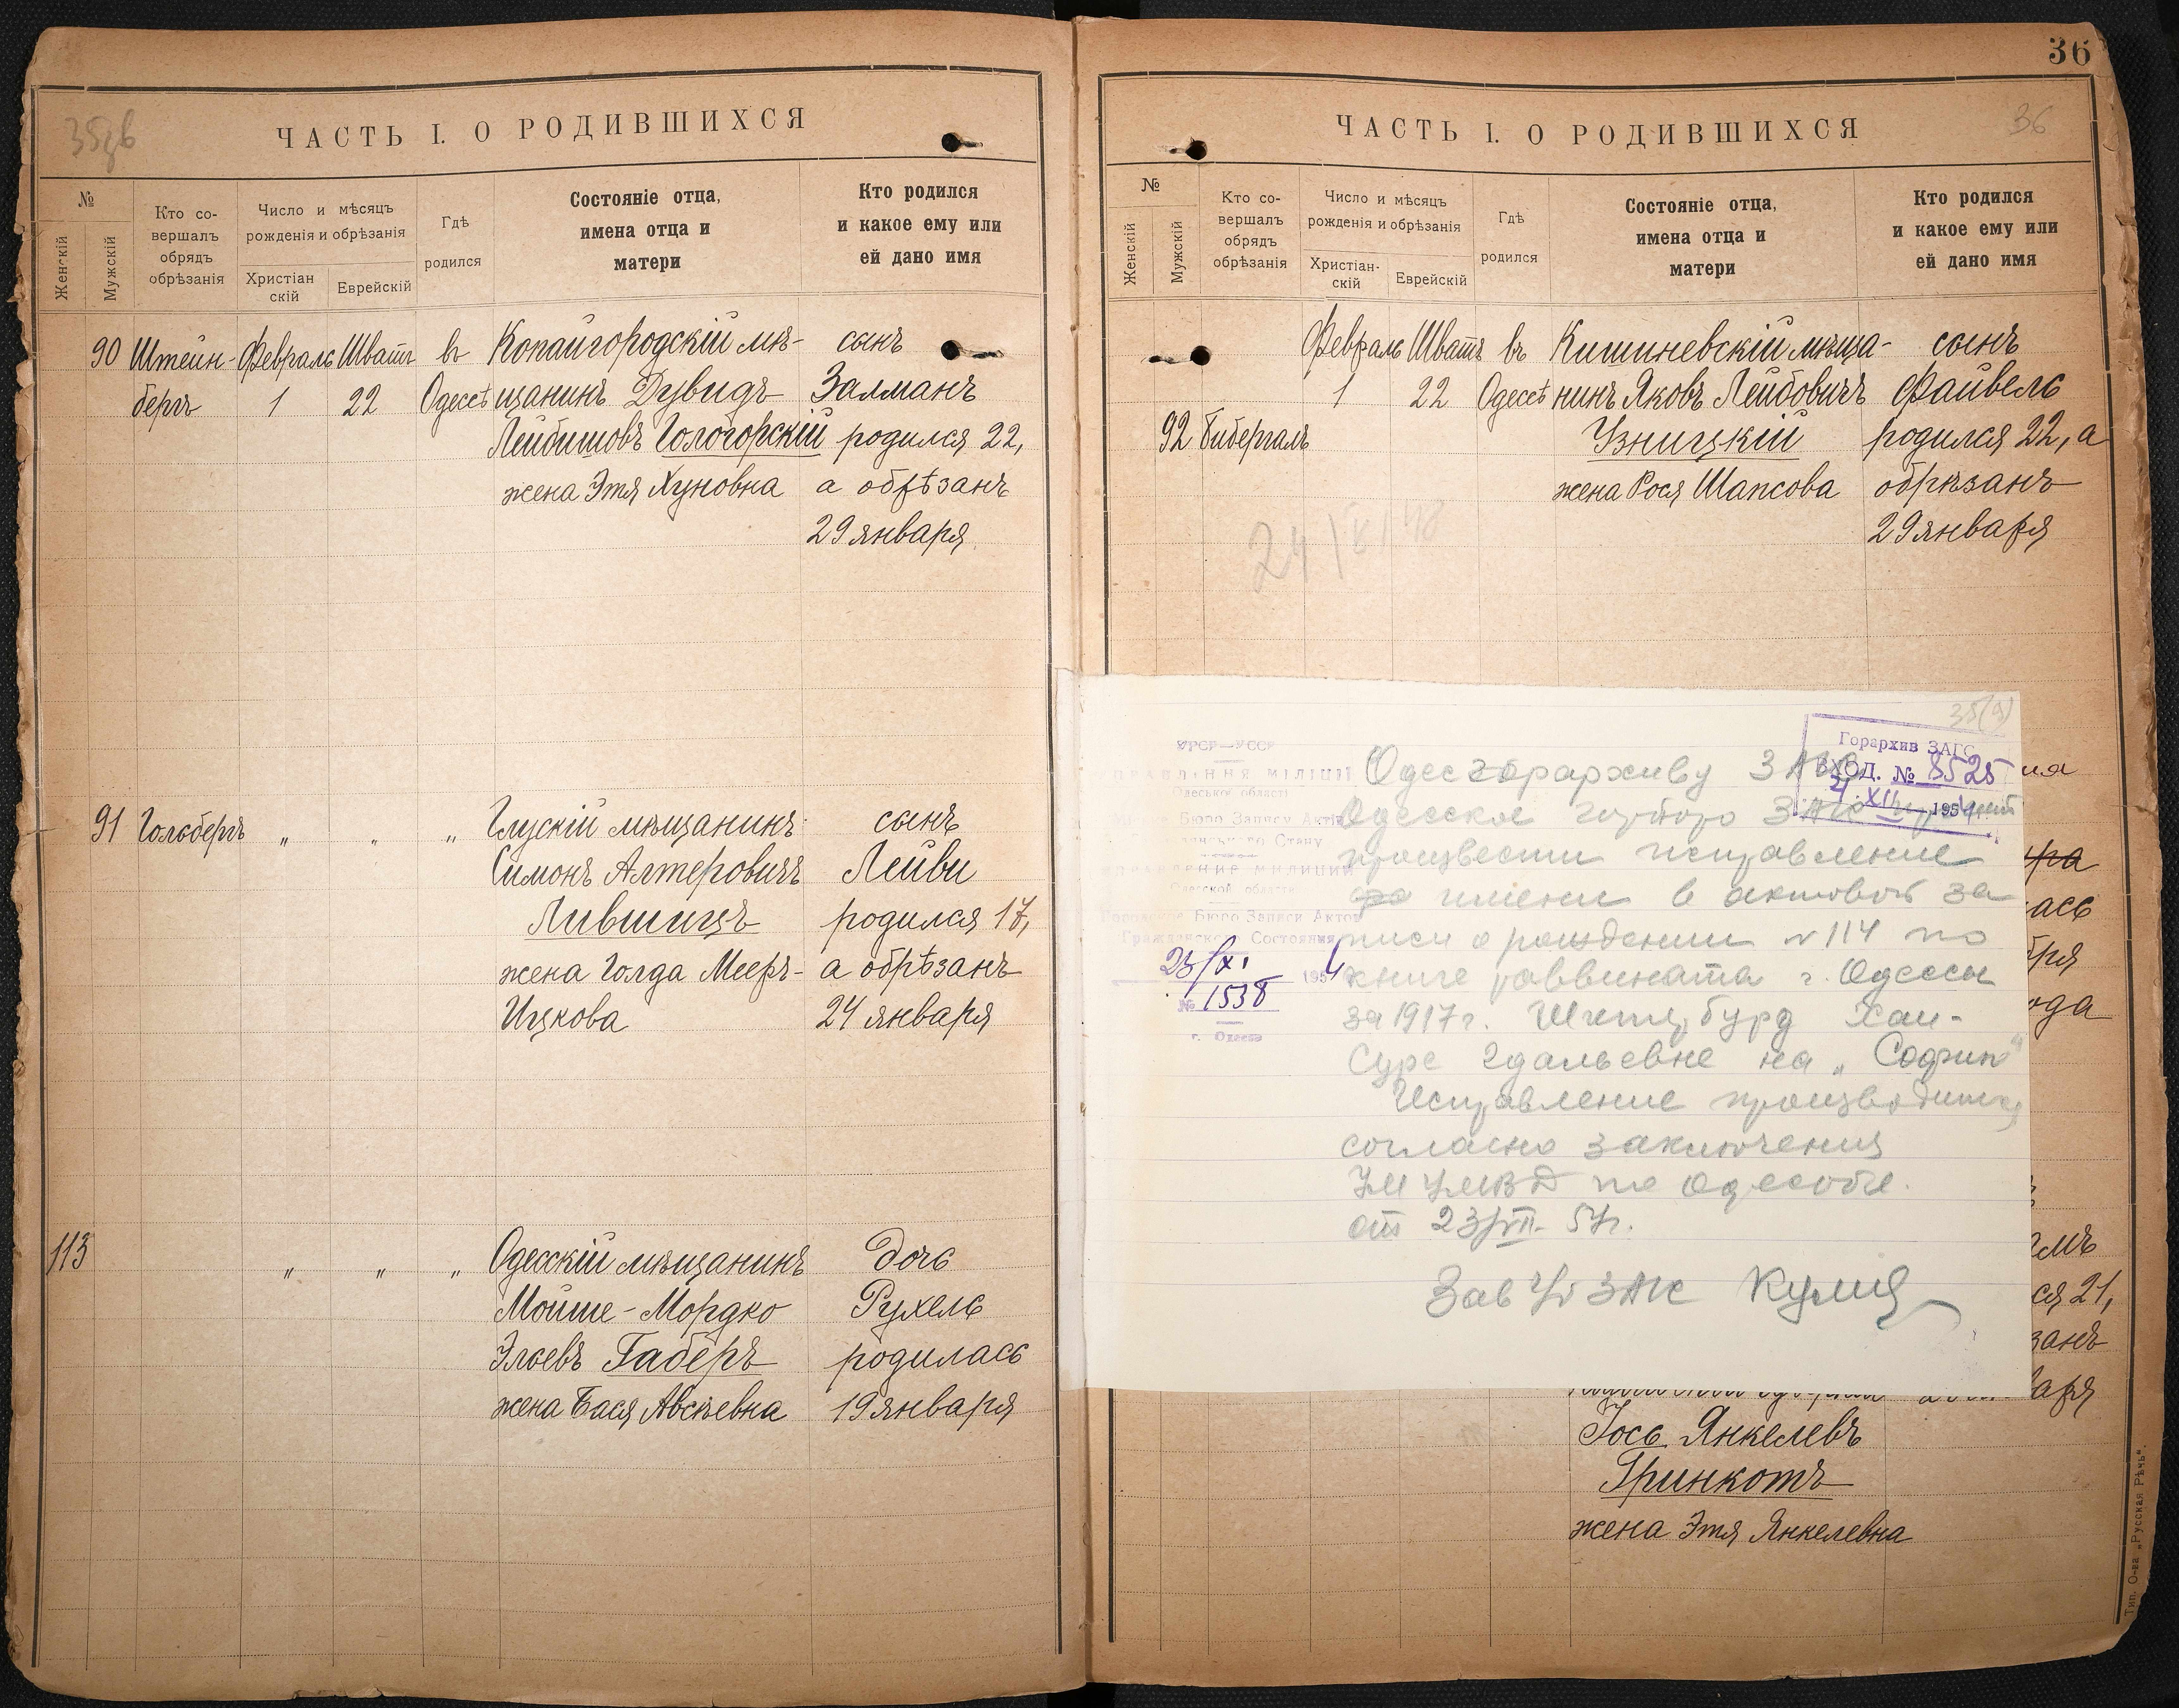 35об
ЧАСТЬ I. О РОДИВШИХСЯ
№
Женскій
Мужскій
Кто со-
вершалъ
обрядъ
обрѣзанія
Число и мѣсяцъ
рожденія и обрѣзанія
Христіан
скій
Еврейскій
Гдѣ
родился
Состояніе отца,
имена отца и
матери
Кто родился
и какое ему или
ей дано имя
90 Штейн- Февраль Шватъ въ Копайгородскій мѣ- сынъ
бергъ 1 22 Одессѣ щанинъ Дувидъ Залманъ
Лейбишовъ Гологорскій родился 22,
жена Этя Хуновна а обрѣзанъ
29 января
91 Гольбергъ „ „ „ Глускій мѣщанинъ сынъ
Симонъ Алтеровичъ Лейви
Лившицъ родился 17,
жена Голда Мееръ- а обрѣзанъ
Ицкова 24 января
113 „ „ „ Одесскій мѣщанинъ дочь
Мойше-Мордко Рухель
Эльевъ Габеръ родилась
жена Бася Авсѣевна 19 января
36
ЧАСТЬ I. О РОДИВШИХСЯ
36
№
Женскій
Мужскій
Кто со-
вершалъ
обрядъ
обрѣзанія
Число и мѣсяцъ
рожденія и обрѣзанія
Христіан-
скій
Еврейскій
Гдѣ
родился
Состояніе отца,
имена отца и
матери
Кто родился
и какое ему или
ей дано имя
Февраль Шватъ въ Кишиневскій мѣща- сынъ
1 22 Одессѣ нинъ Яковъ Лейбовичъ Файвель
92 Бибергалъ Узницкій родился 22, а
жена Рося Шапсова обрѣзанъ
29 января
35(а)
Горархив ЗАГС
ВХОД. № 8525
XII 1954
УРСР—УССР
УПРАВЛІННЯ МІЛІЦІЇ
Одеської області
Бюро Запису Актів
Стану
УПРАВЛЕНИЕ МИЛИЦИИ
Одесской области
Бюро Записи Актов
Гражданского Состояния
23/XI 1954
№ 1538
г. Одесса
Одесгорархиву ЗАГС
Одесское горбюро ЗАГС просит
произвести исправление
имени в актовой за
писи о рождении №114 по
книге раввината г. Одессы
за 1917г. Хаи-
Суре Гдальевне на „София"
Исправление производится
согласно заключения
УМ УМВД по Одесобл.
от 23/VII- 54г.
Зав ЗАГС
ась
ода
ся 21,
занъ
аря
Іось Янкелевъ
Гринкотъ
жена Этя Янкелевна
Тип. О-ва „Русская Рѣчь".